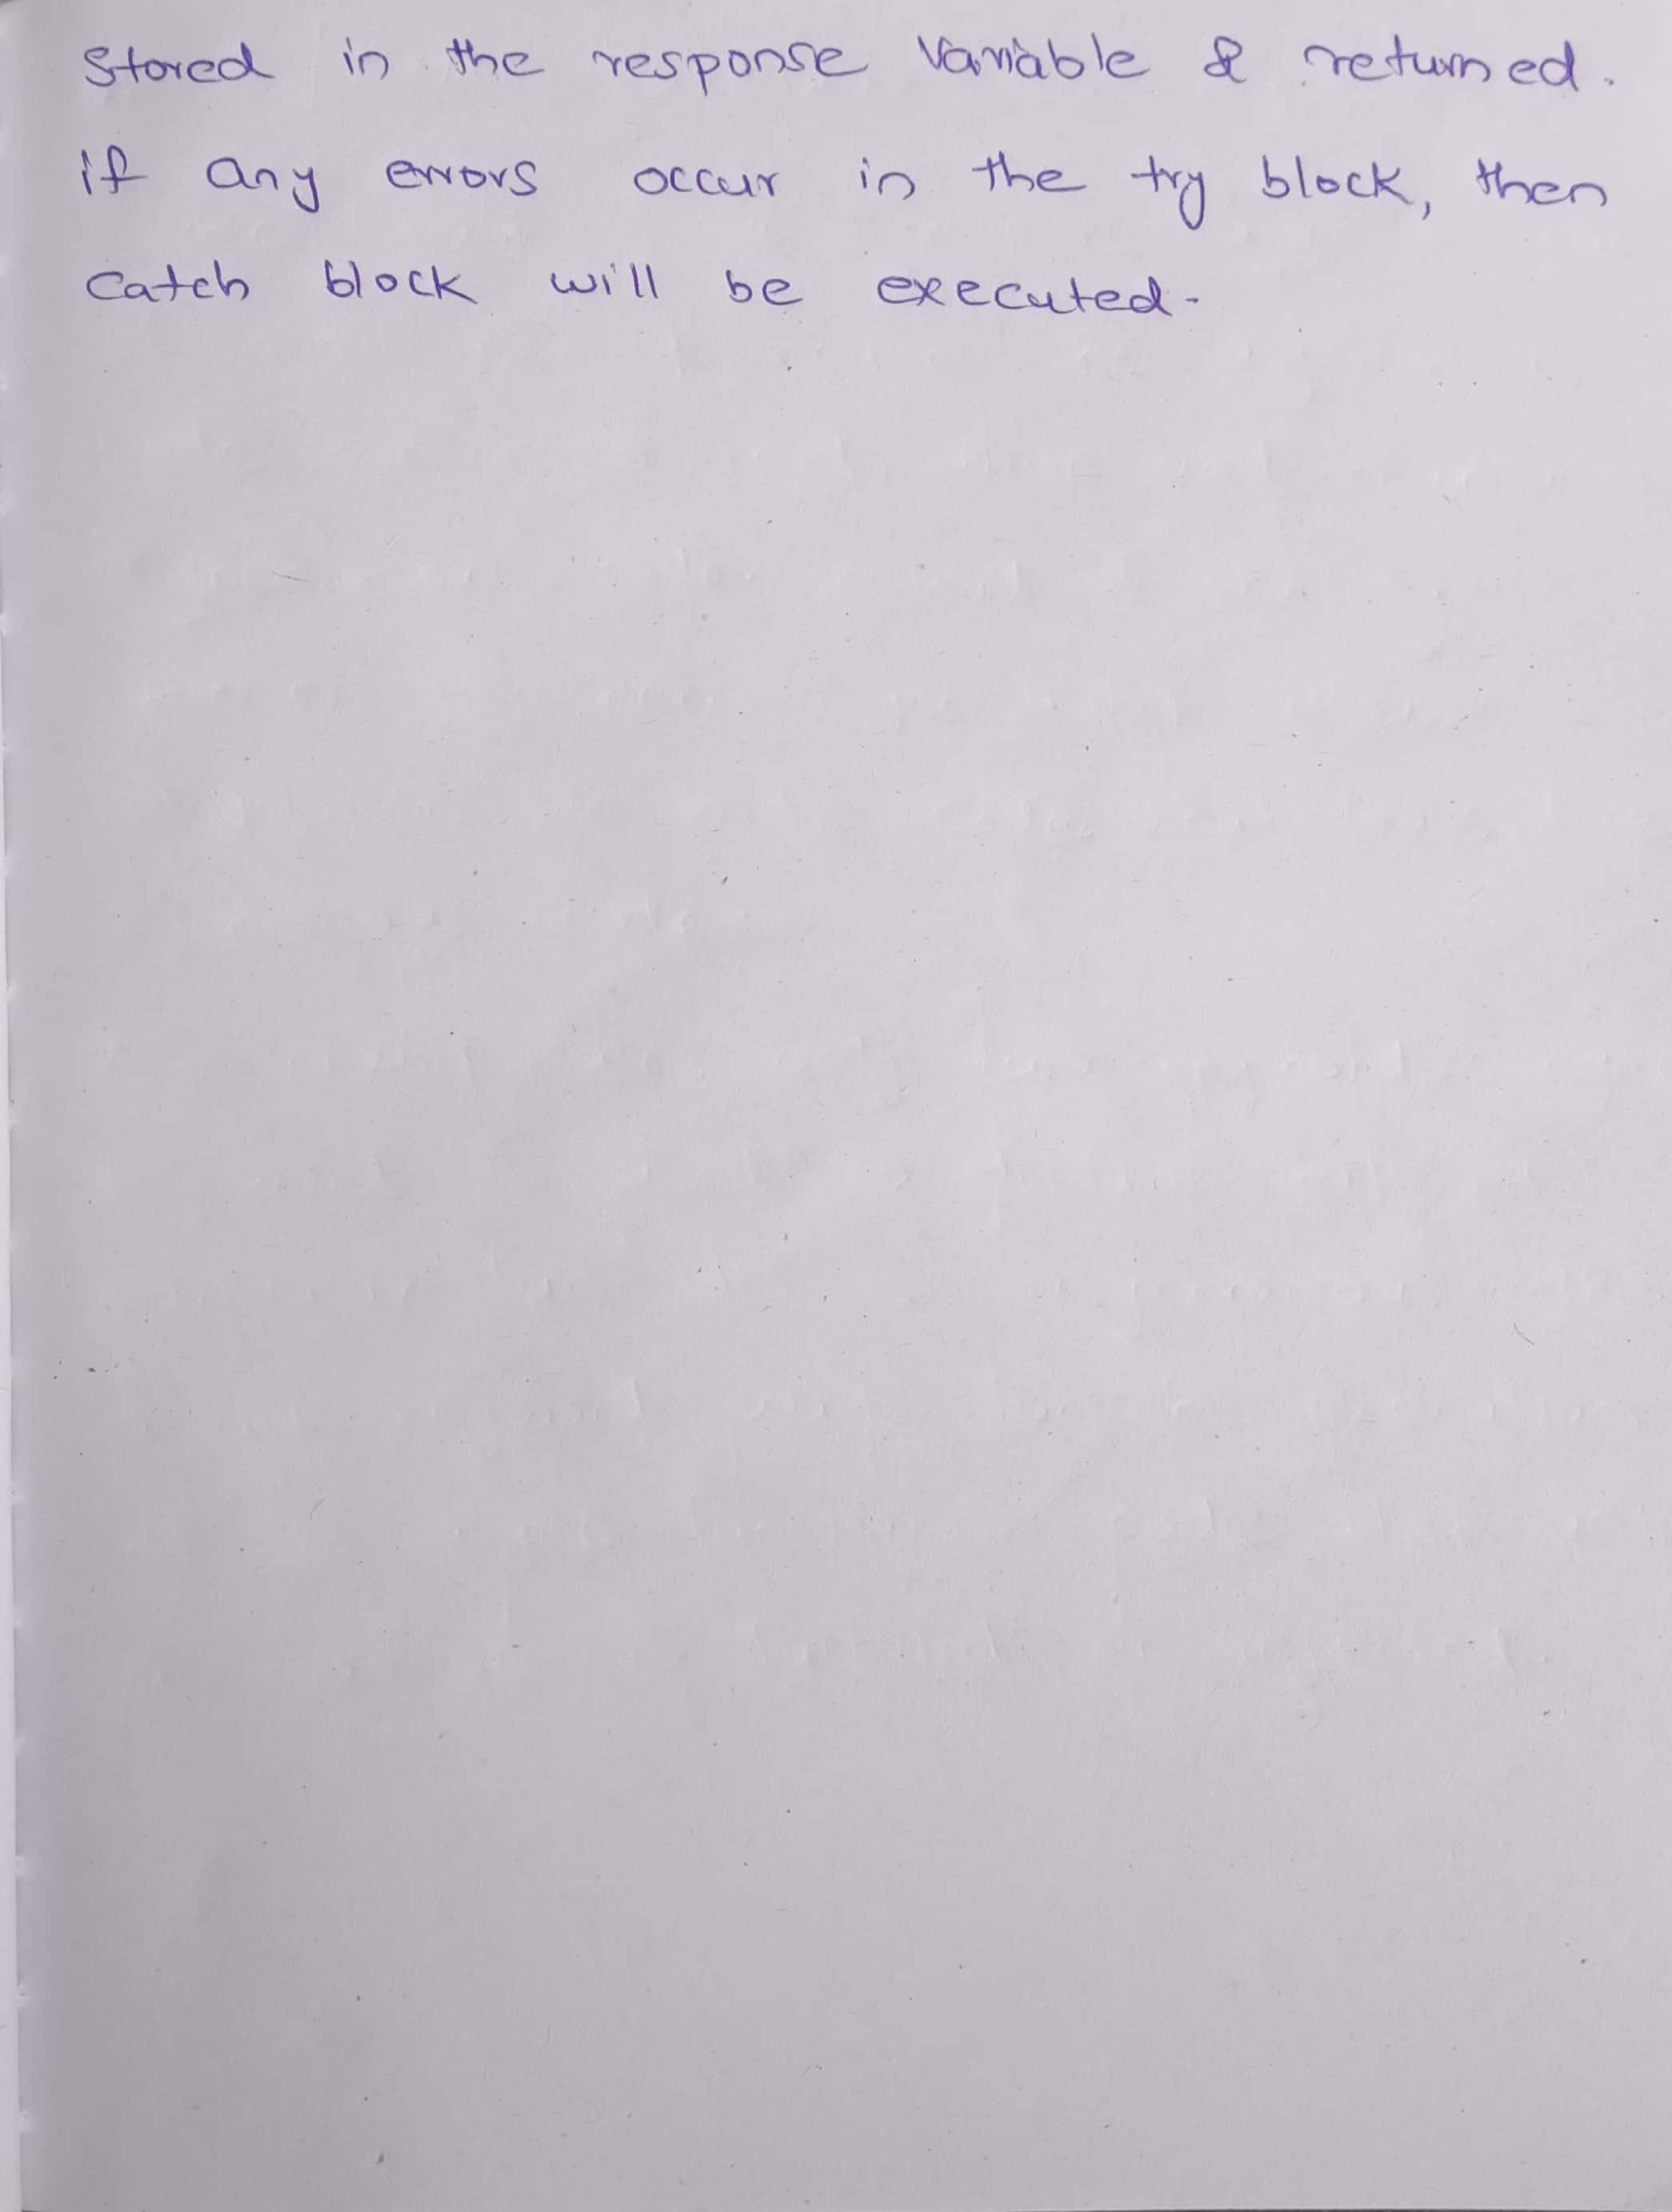 Stored in the response Variable & returned.
if any errors occur in the try block, then
Catch block will be executed.